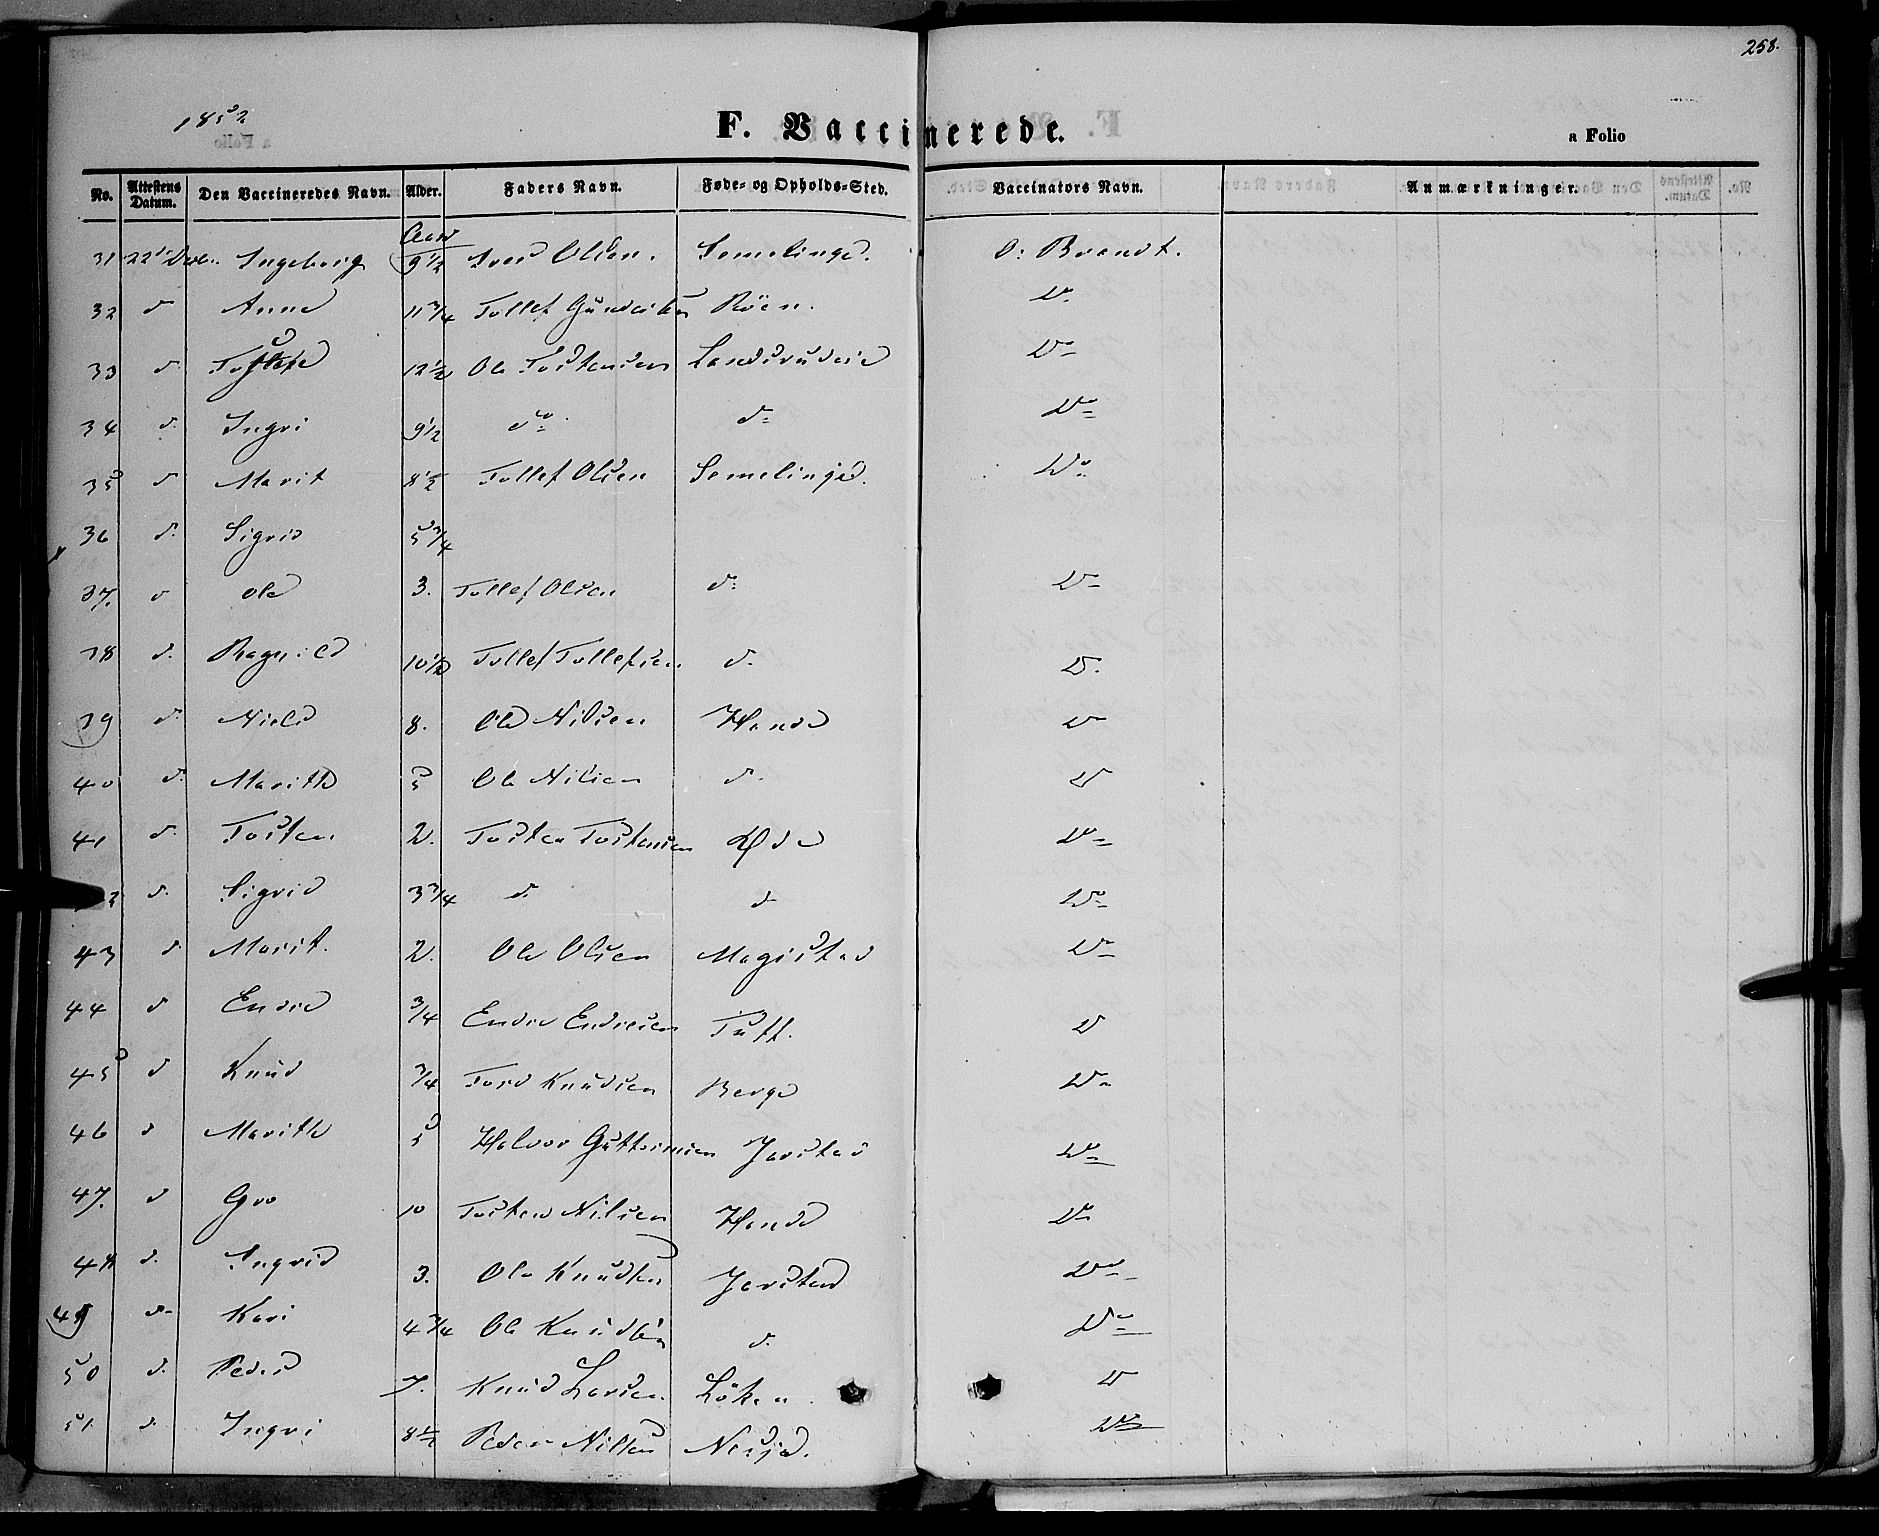 258.
1852
F. Vaccinerede.
a Folio
No. Attestens Datum. Den Vaccineredes Navn. Alder. Faders Navn. Føde- og Opholds-Sted. Vaccinators Navn. Anmærkninger.
Aar
31 22 Decbr. Ingeborg 9 1/2 Iver Olsen. Semelinge. O: Brandt.
32 d Anne 11 3/4 Tollef Röen. Do
33 d. 12 1/2 Ole Tostensen Do
34 d. Ingri 9 1/2 do d= Do
35 d Marit 8 1/2 Tollef Olsen Semelinge. Do
36 d. Sigrid 5 3/4
37. d Ole 3. Tollef Olsen d: Do
38 d. Ragnild 10 1/2 Tollef Tollefsen d. D.
39 d. Niels 8. Ole Nilsen Hande D
40 d. Marithe 5 Ole Nilsen d. D
41 d. Tosten 2. Tosten Tostensen Øde Do
42 d. Sigrid 3 3/4 d. d Do
43 d Marit. 2. Ole Olsen Magistad Do
44 d Endre 3/4 Endre Endresen Tuff. D
45 d Knud 3/4 Tord Knudsen Berge Do
46 d Marithe 5 Halvor Guttormsen Jarstad Do
47. d Gro 10 Tosten Nilsen Hande Do
48 d. Ingrid 3. Ole Knudsen Jarstad Do
49 d. Kari 4 3/4 Ole Knudsen d. Do
50 d. Peder 7. Knud Larsen Löken. D
51 d. Ingri 8 1/2 Peder Nilsen Do